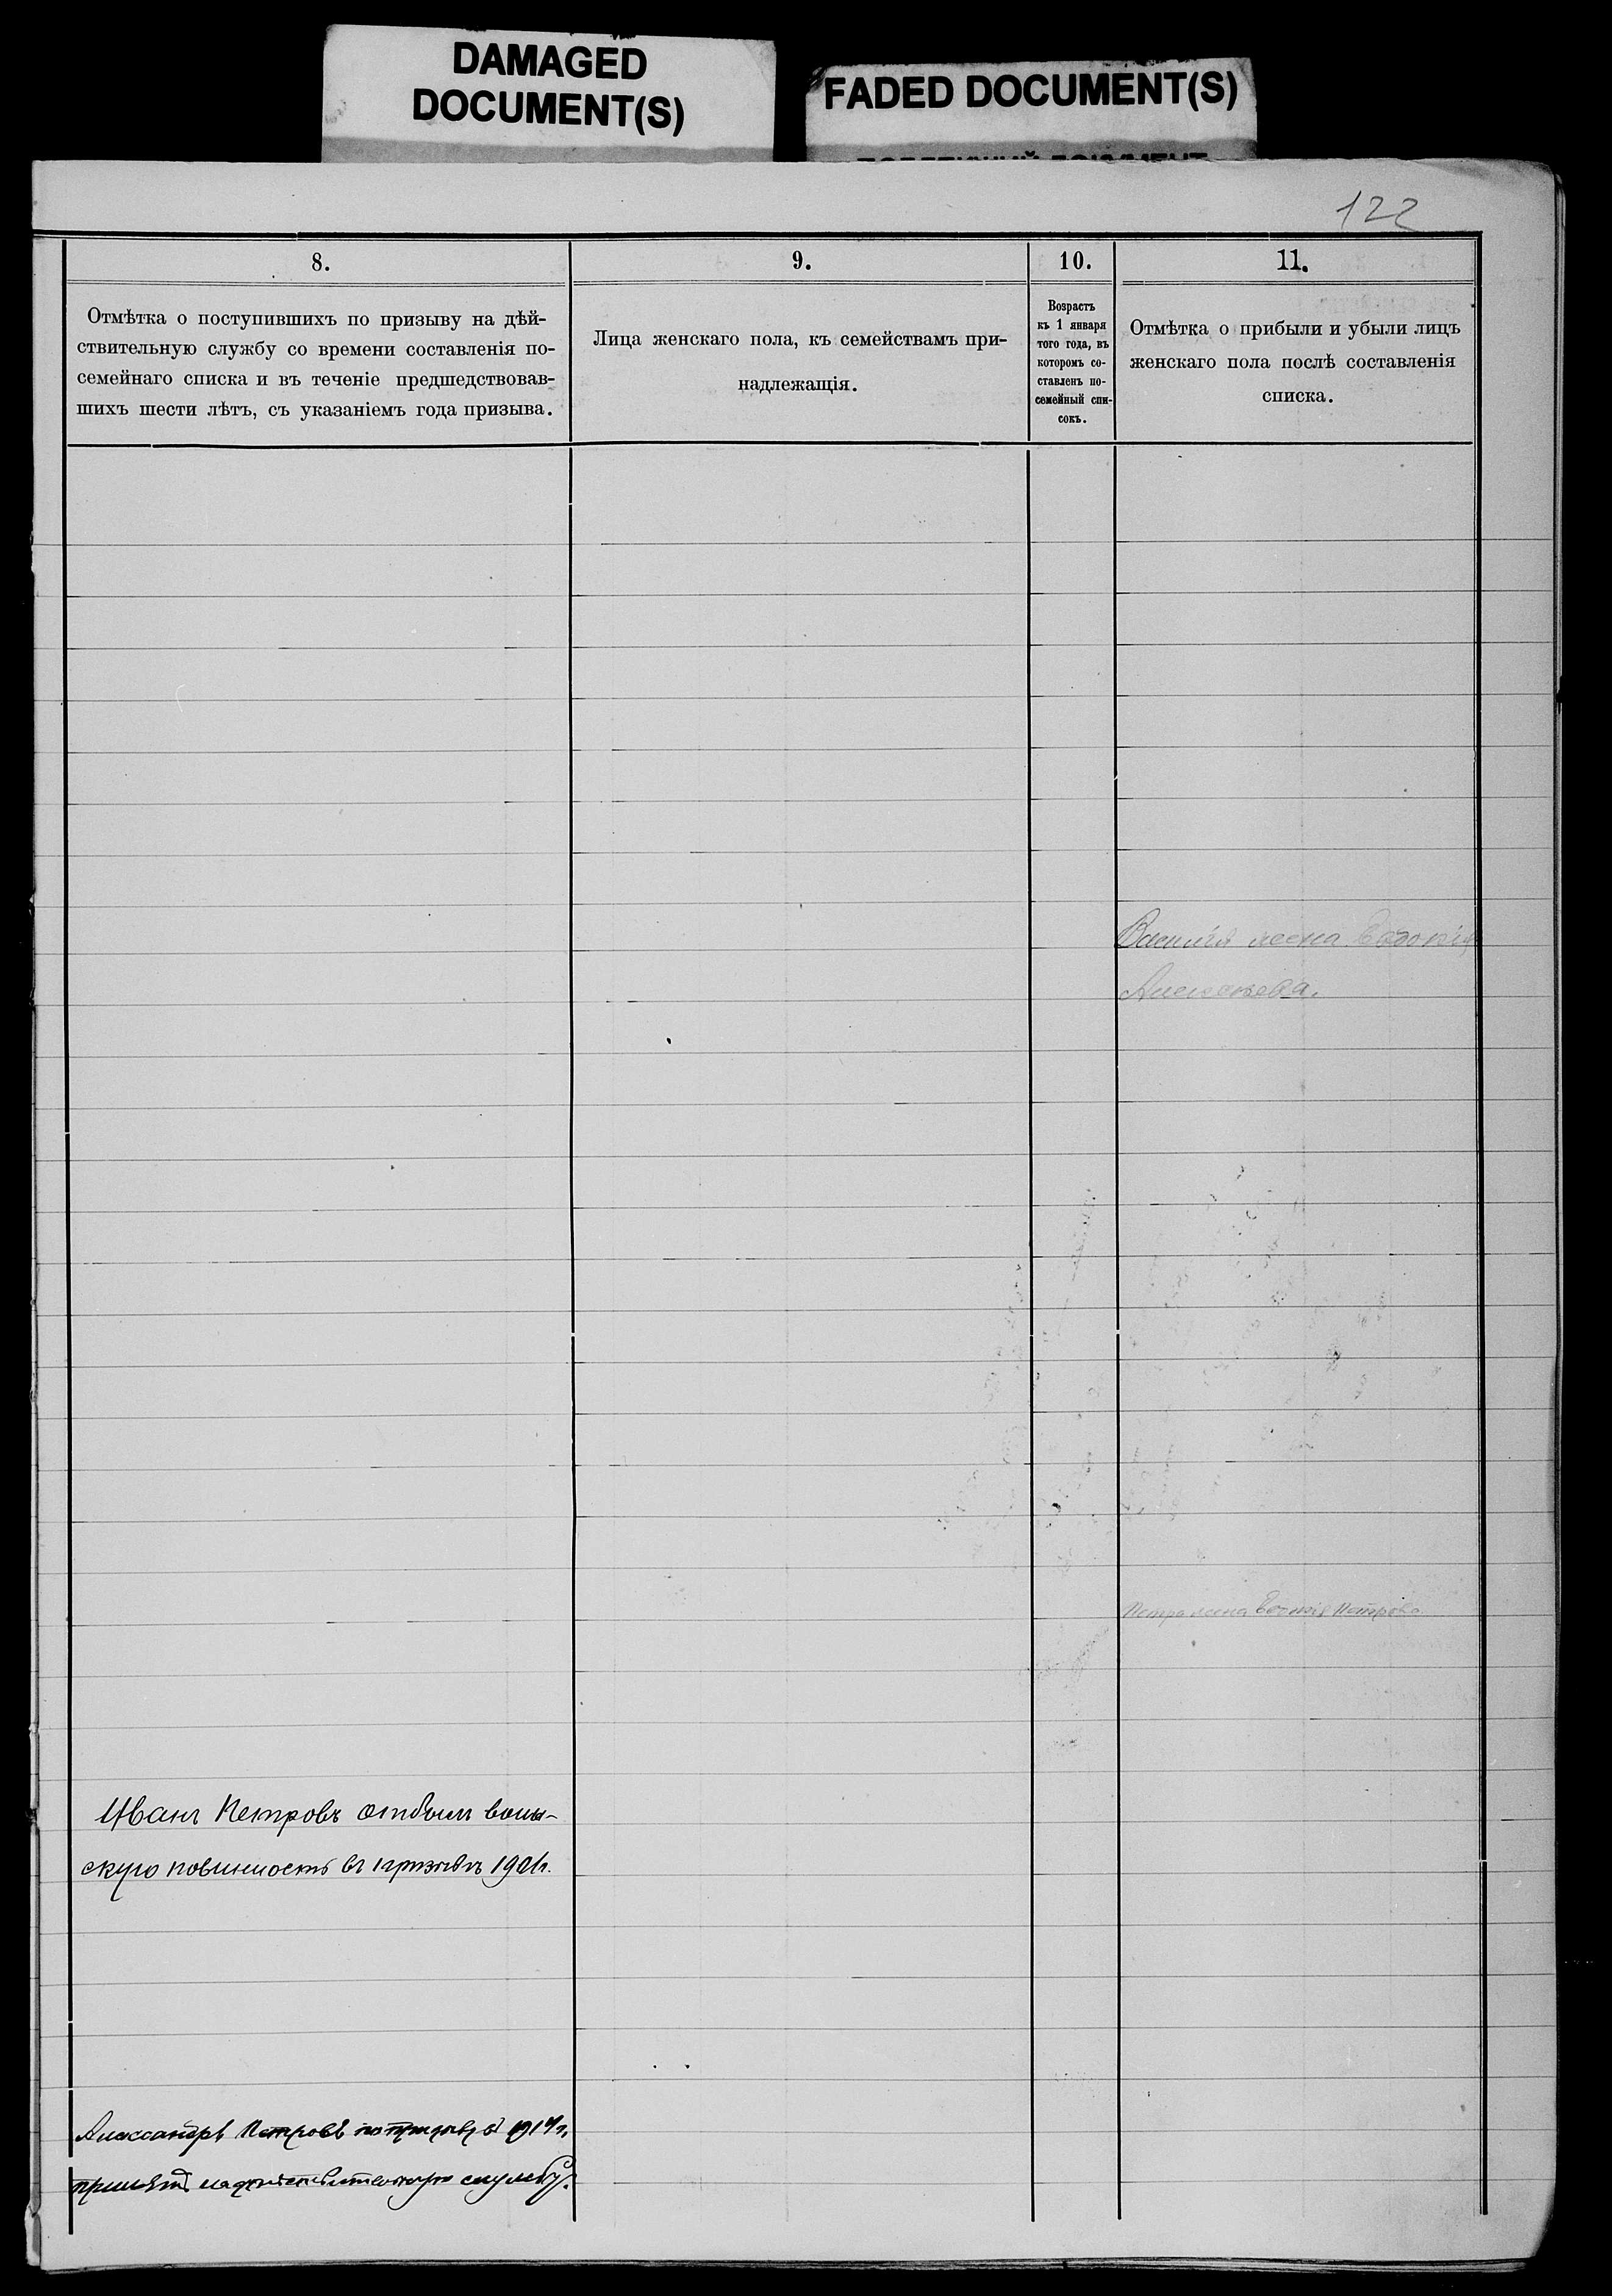 DAMAGED
DOCUMENT(S)
FADED DOCUMENT(S)
122
8.
9.
10.
11.
Отмѣтка о поступившихъ по призыву на дѣй-
ствительную службу со времени составленія по-
семейнаго списка и въ теченіе предшедствовав-
шихъ шести лѣтъ, съ указаніемъ года призыва.
Лица женскаго пола, къ семействамъ при-
надлежащія.
Возрастъ
къ 1 января
того года, въ
которомъ со-
ставленъ по-
семейный спи-
сокъ.
Отмѣтка о прибыли и убыли лицъ
женскаго пола послѣ составленія
списка.
Василія жена Евдокія
Алексѣева.
Петра жена Петрова
Иванъ Петровъ отбылъ воин-
скую повинность въ призывъ 1901г.
Александръ Петровъ по призыву 1914г.
принятъ на дѣйствительную службу.